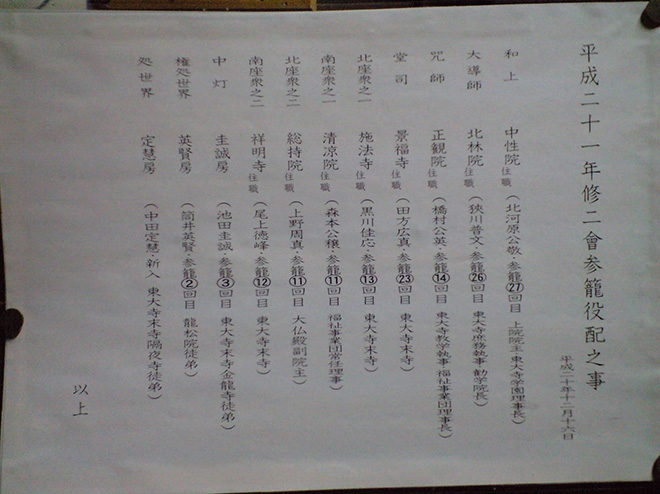 平成二十一年修二會参籠役配之事
平成二十年十二月十六日
和上 中性院住職（北河原公敬・参籠㉗回目 上院院主・東大寺学園理事長）
大導師 北林院住職（狹川普文・参籠㉖回目 東大寺庶務執事 勧学院長）
咒師 正観院住職（橋村公英・参籠⑭回目 東大寺教学執事 福祉事業団理事長）
堂司 景福寺住職（田方広真・参籠㉓回目 東大寺末寺）
北座衆之一 施法寺住職（黒川佳応・参籠⑬回目 東大寺末寺）
南座衆之一 清凉院住職（森本公穣・参籠⑪回目 福祉事業団常任理事）
北座衆之二 総持院住職（上野周真・参籠⑪回目 大仏殿副院主）
南座衆之二 祥明寺住職（尾上徳峰・参籠⑫回目 東大寺末寺）
中灯 圭誠房（池田圭誠・参籠③回目 東大寺末寺金龍寺徒弟）
権処世界 英賢房（筒井英賢・参籠②回目 龍松院徒弟）
処世界 定慧房（中田定慧・新入 東大寺末寺隔夜寺徒弟）
以上